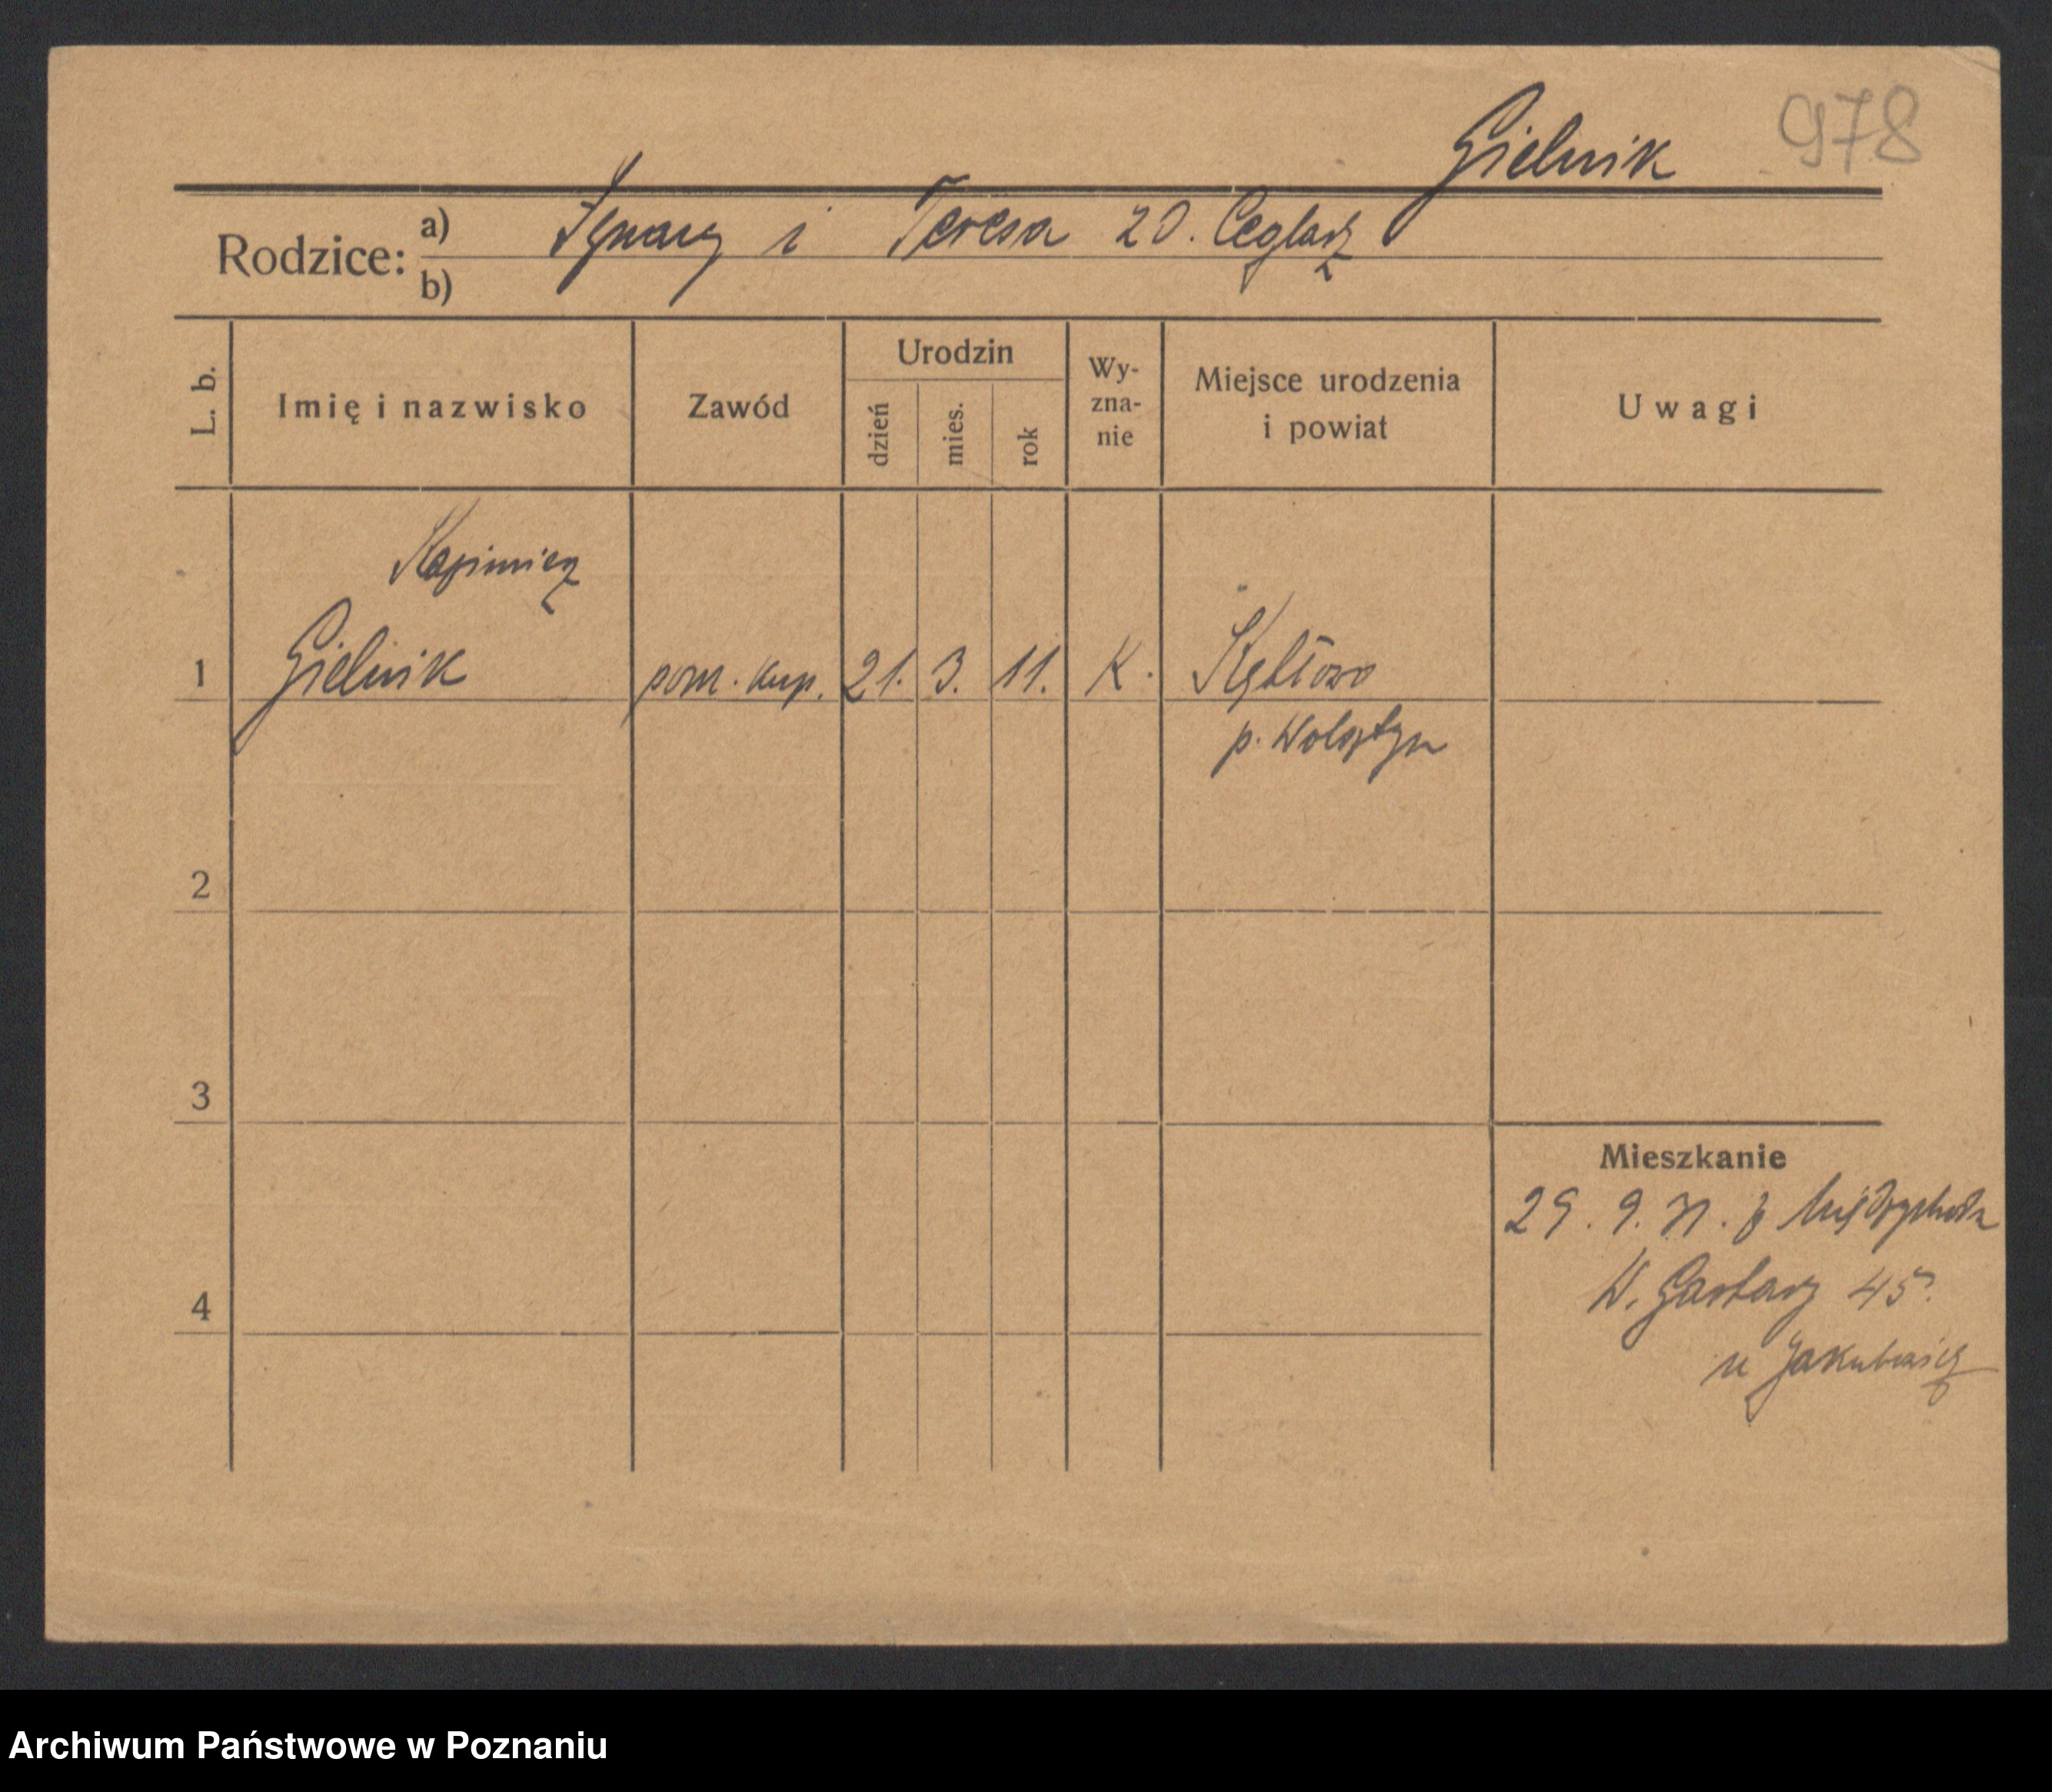 Gielnik 978
Rodzice: a) Ignacy i Teresa zd. Ceglarz
b)
L. b. Imię i nazwisko Zawód Urodzin dzień mies. rok Wy-zna-nie Miejsce urodzenia i powiat Uwagi
Kazimierz
1 Gielnik pom. kup. 21. 3. 11. K. Kębłowo
p. Wolsztyn
2
3
Mieszkanie
29. 9. 31. z Międzychodu
W. Garbary 45.
4
u Jakubowicz
Archiwum Państwowe w Poznaniu